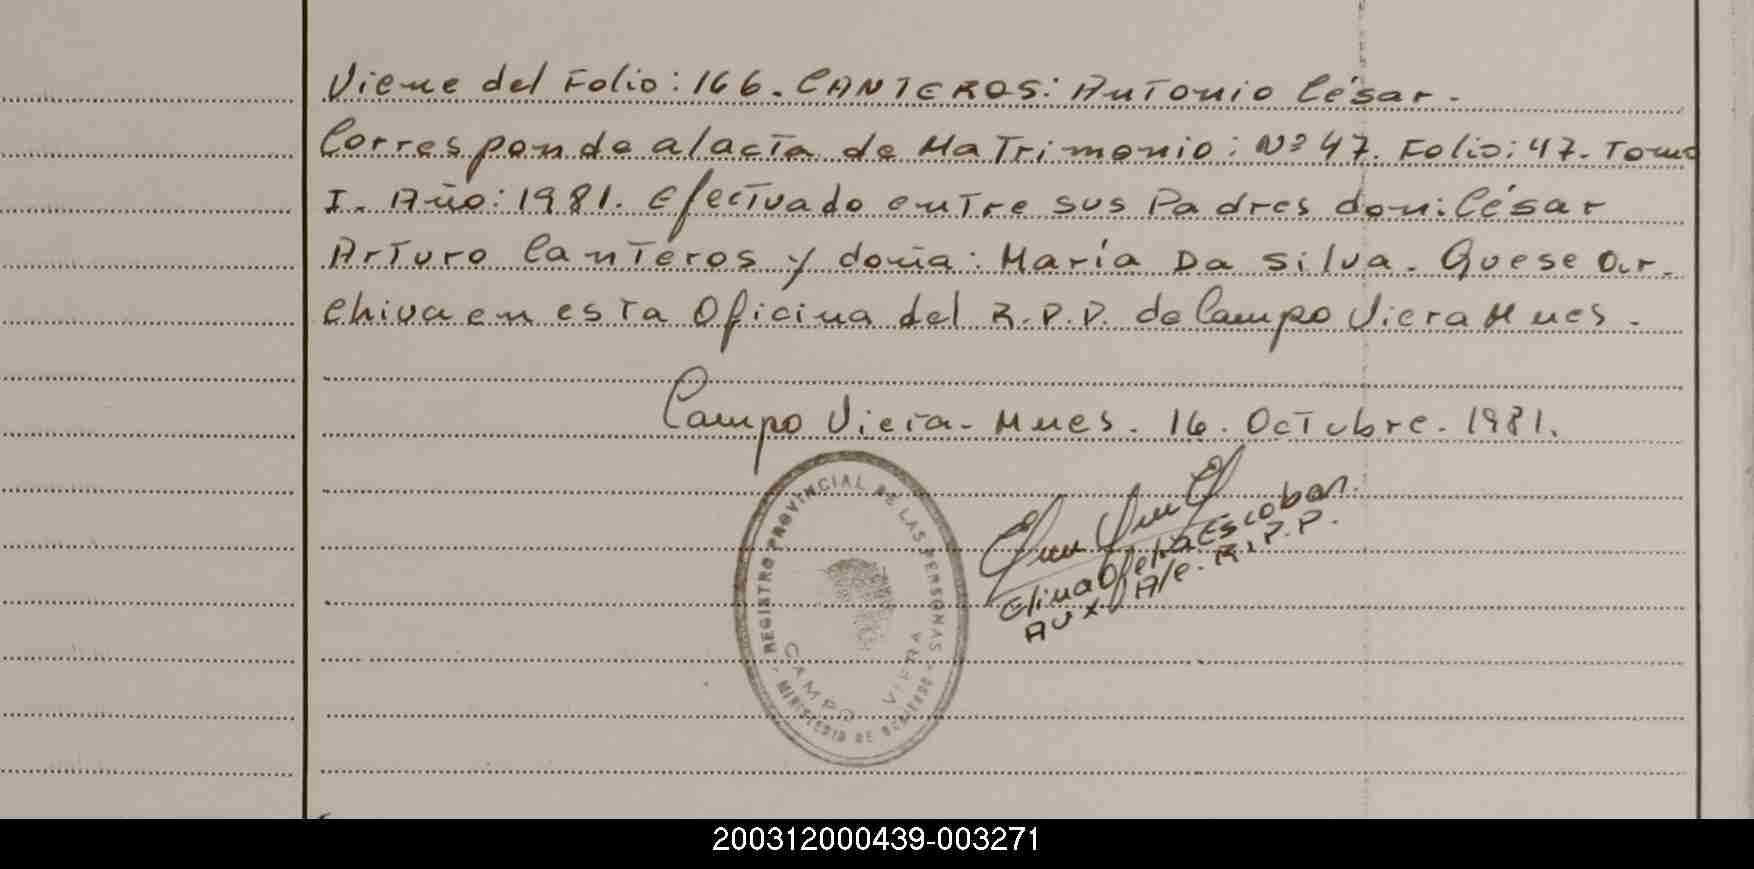 Viene del Folio: 166. CANTEROS: Antonio César.
Corresponde al acta de Matrimonio: Nº 47. Folio: 47. Tomo
I. Año: 1981. Efectuado entre sus Padres don: César
Arturo Canteros y doña: María Da Silva. Que se ar-
chiva en esta Oficina del R.P.P. de Campo Viera Mnes.
Campo Viera - Mnes. 16. Octubre. 1981.
REGISTRO PROVINCIAL DE LAS PERSONAS
CAMPO VIERA
MINISTERIO DE GOBIERNO
Elina Ofelia Escobar.
AUX. A/c. R.P.P.
200312000439-003271